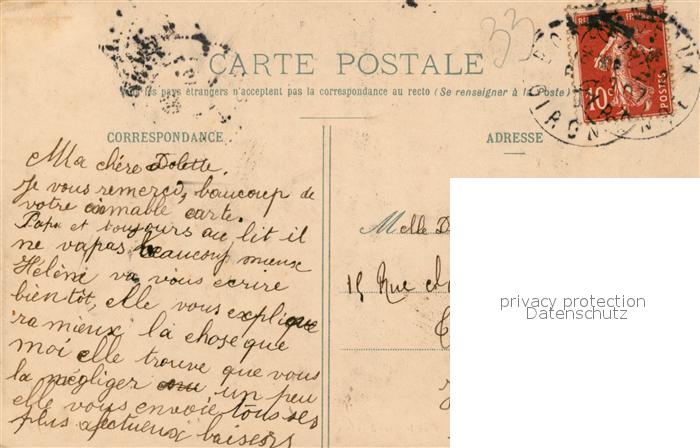 33
CARTE POSTALE
les pays étrangers n'acceptent pas la correspondance au recto (Se renseigner à la Poste)
10c
POSTES
GIRONDE
CORRESPONDANCE
ADRESSE
Ma chère Dolette.
Je vous remerci, baucoup de
votre aimable carte.
Papa et toujours au lit il
ne va pas beaucoup mieux
Hélène va vous écrire
bientot, elle vous explique
ra mieux la chose que
moi elle trouve que vous
la négliger un peu
elle vous envoie tous ses
plus afectueux baisers
Melle D
15 Rue
privacy protection
Datenschutz